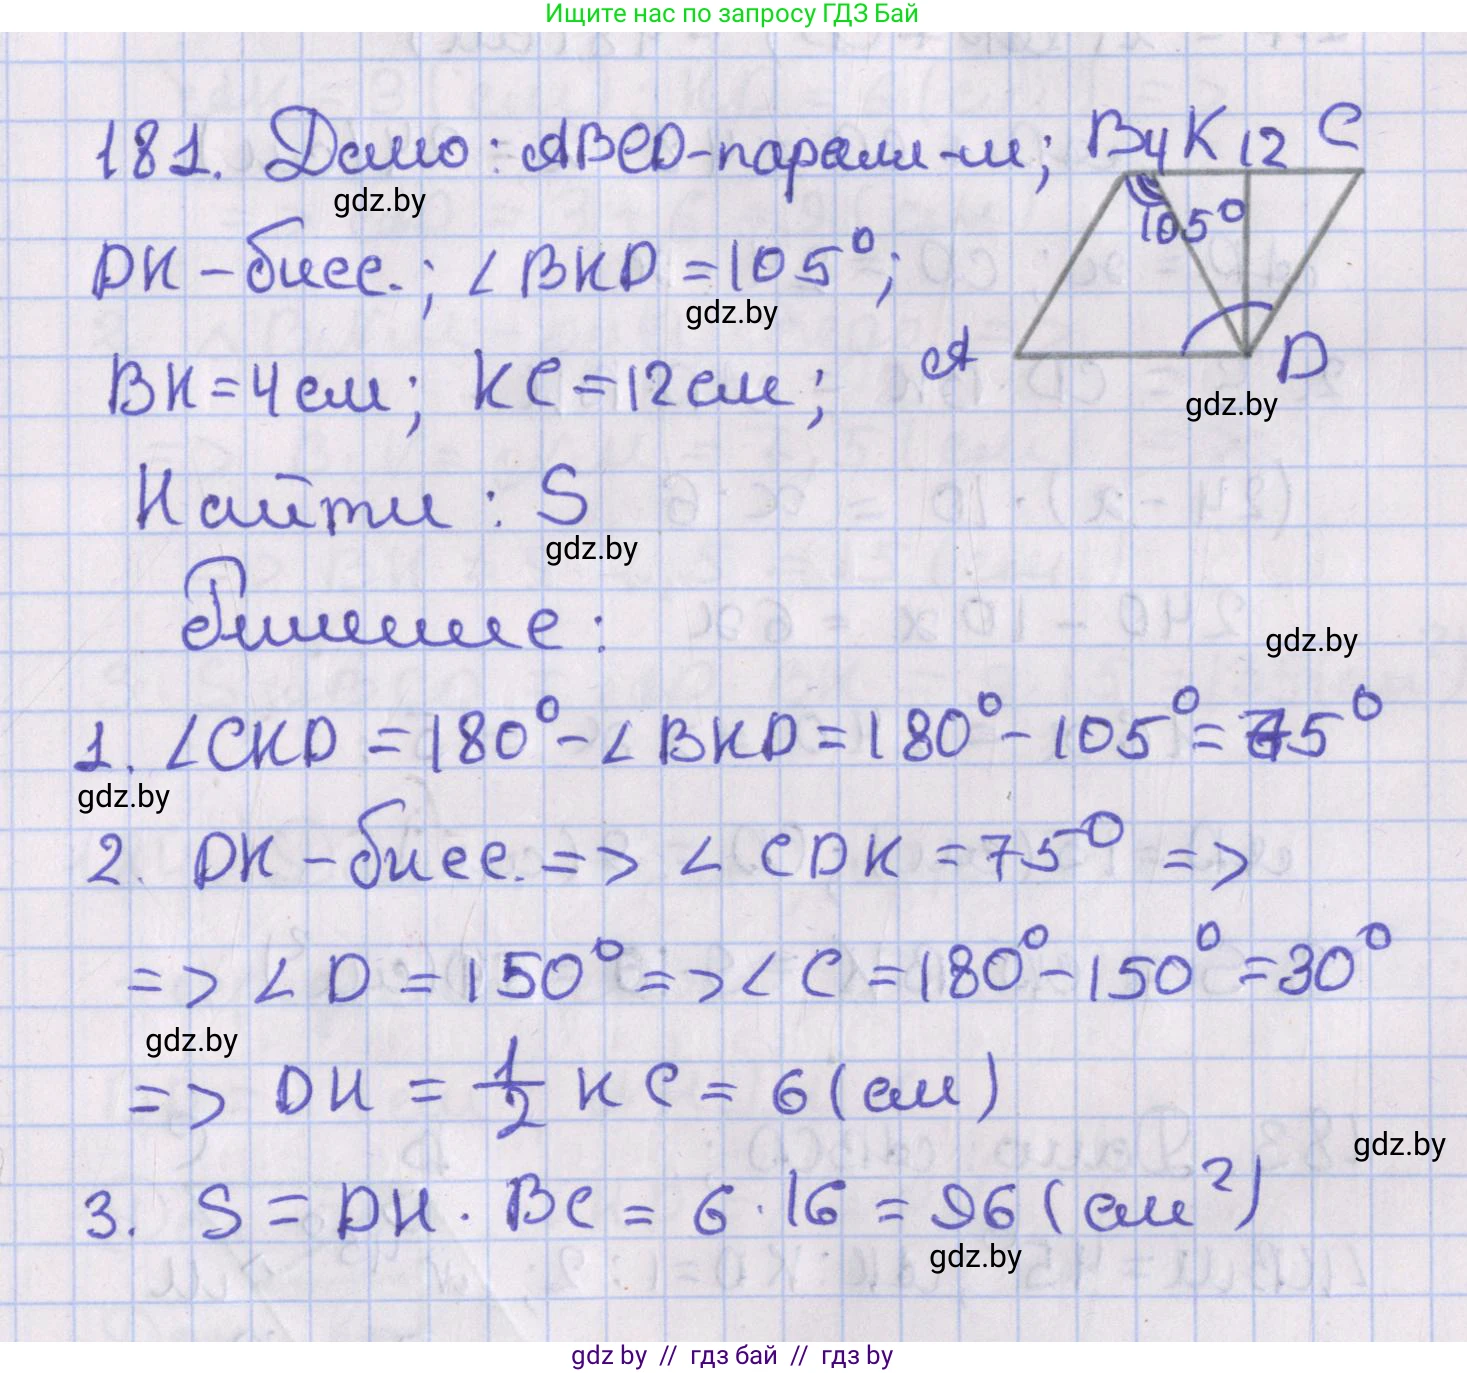 Ищите нас по запросу ГДЗ Бай
181. Дано: ABCD-паралл-м; B 4 K 12 C
gdz.by
105°
DK - бисс.; ∠BKD = 105°;
gdz.by
A D
BK = 4 см; KC = 12 см;
gdz.by
Найти: S
gdz.by
Решение:
gdz.by
1. ∠CKD = 180° - ∠BKD = 180° - 105° = 75°
gdz.by
2. DK - бисс. => ∠CDK = 75° =>
=> ∠D = 150° => ∠C = 180° - 150° = 30°
gdz.by
=> DH = 1/2 KC = 6 (см)
gdz.by
3. S = DH · BC = 6 · 16 = 96 (см²)
gdz.by
gdz by // гдз бай // гдз by